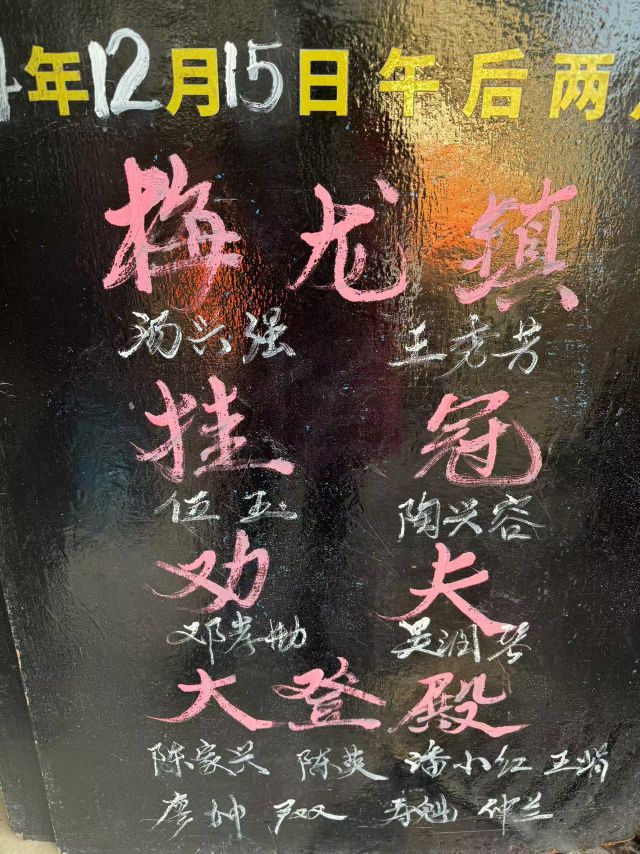 年12月15日午后两
梅龙镇
汤兴强 王秀芳
挂冠
伍玉 陶兴容
劝夫
邓孝勋 吴润
大登殿
陈家兴 陈英 潘小红 王娟
廖帅 仲兰